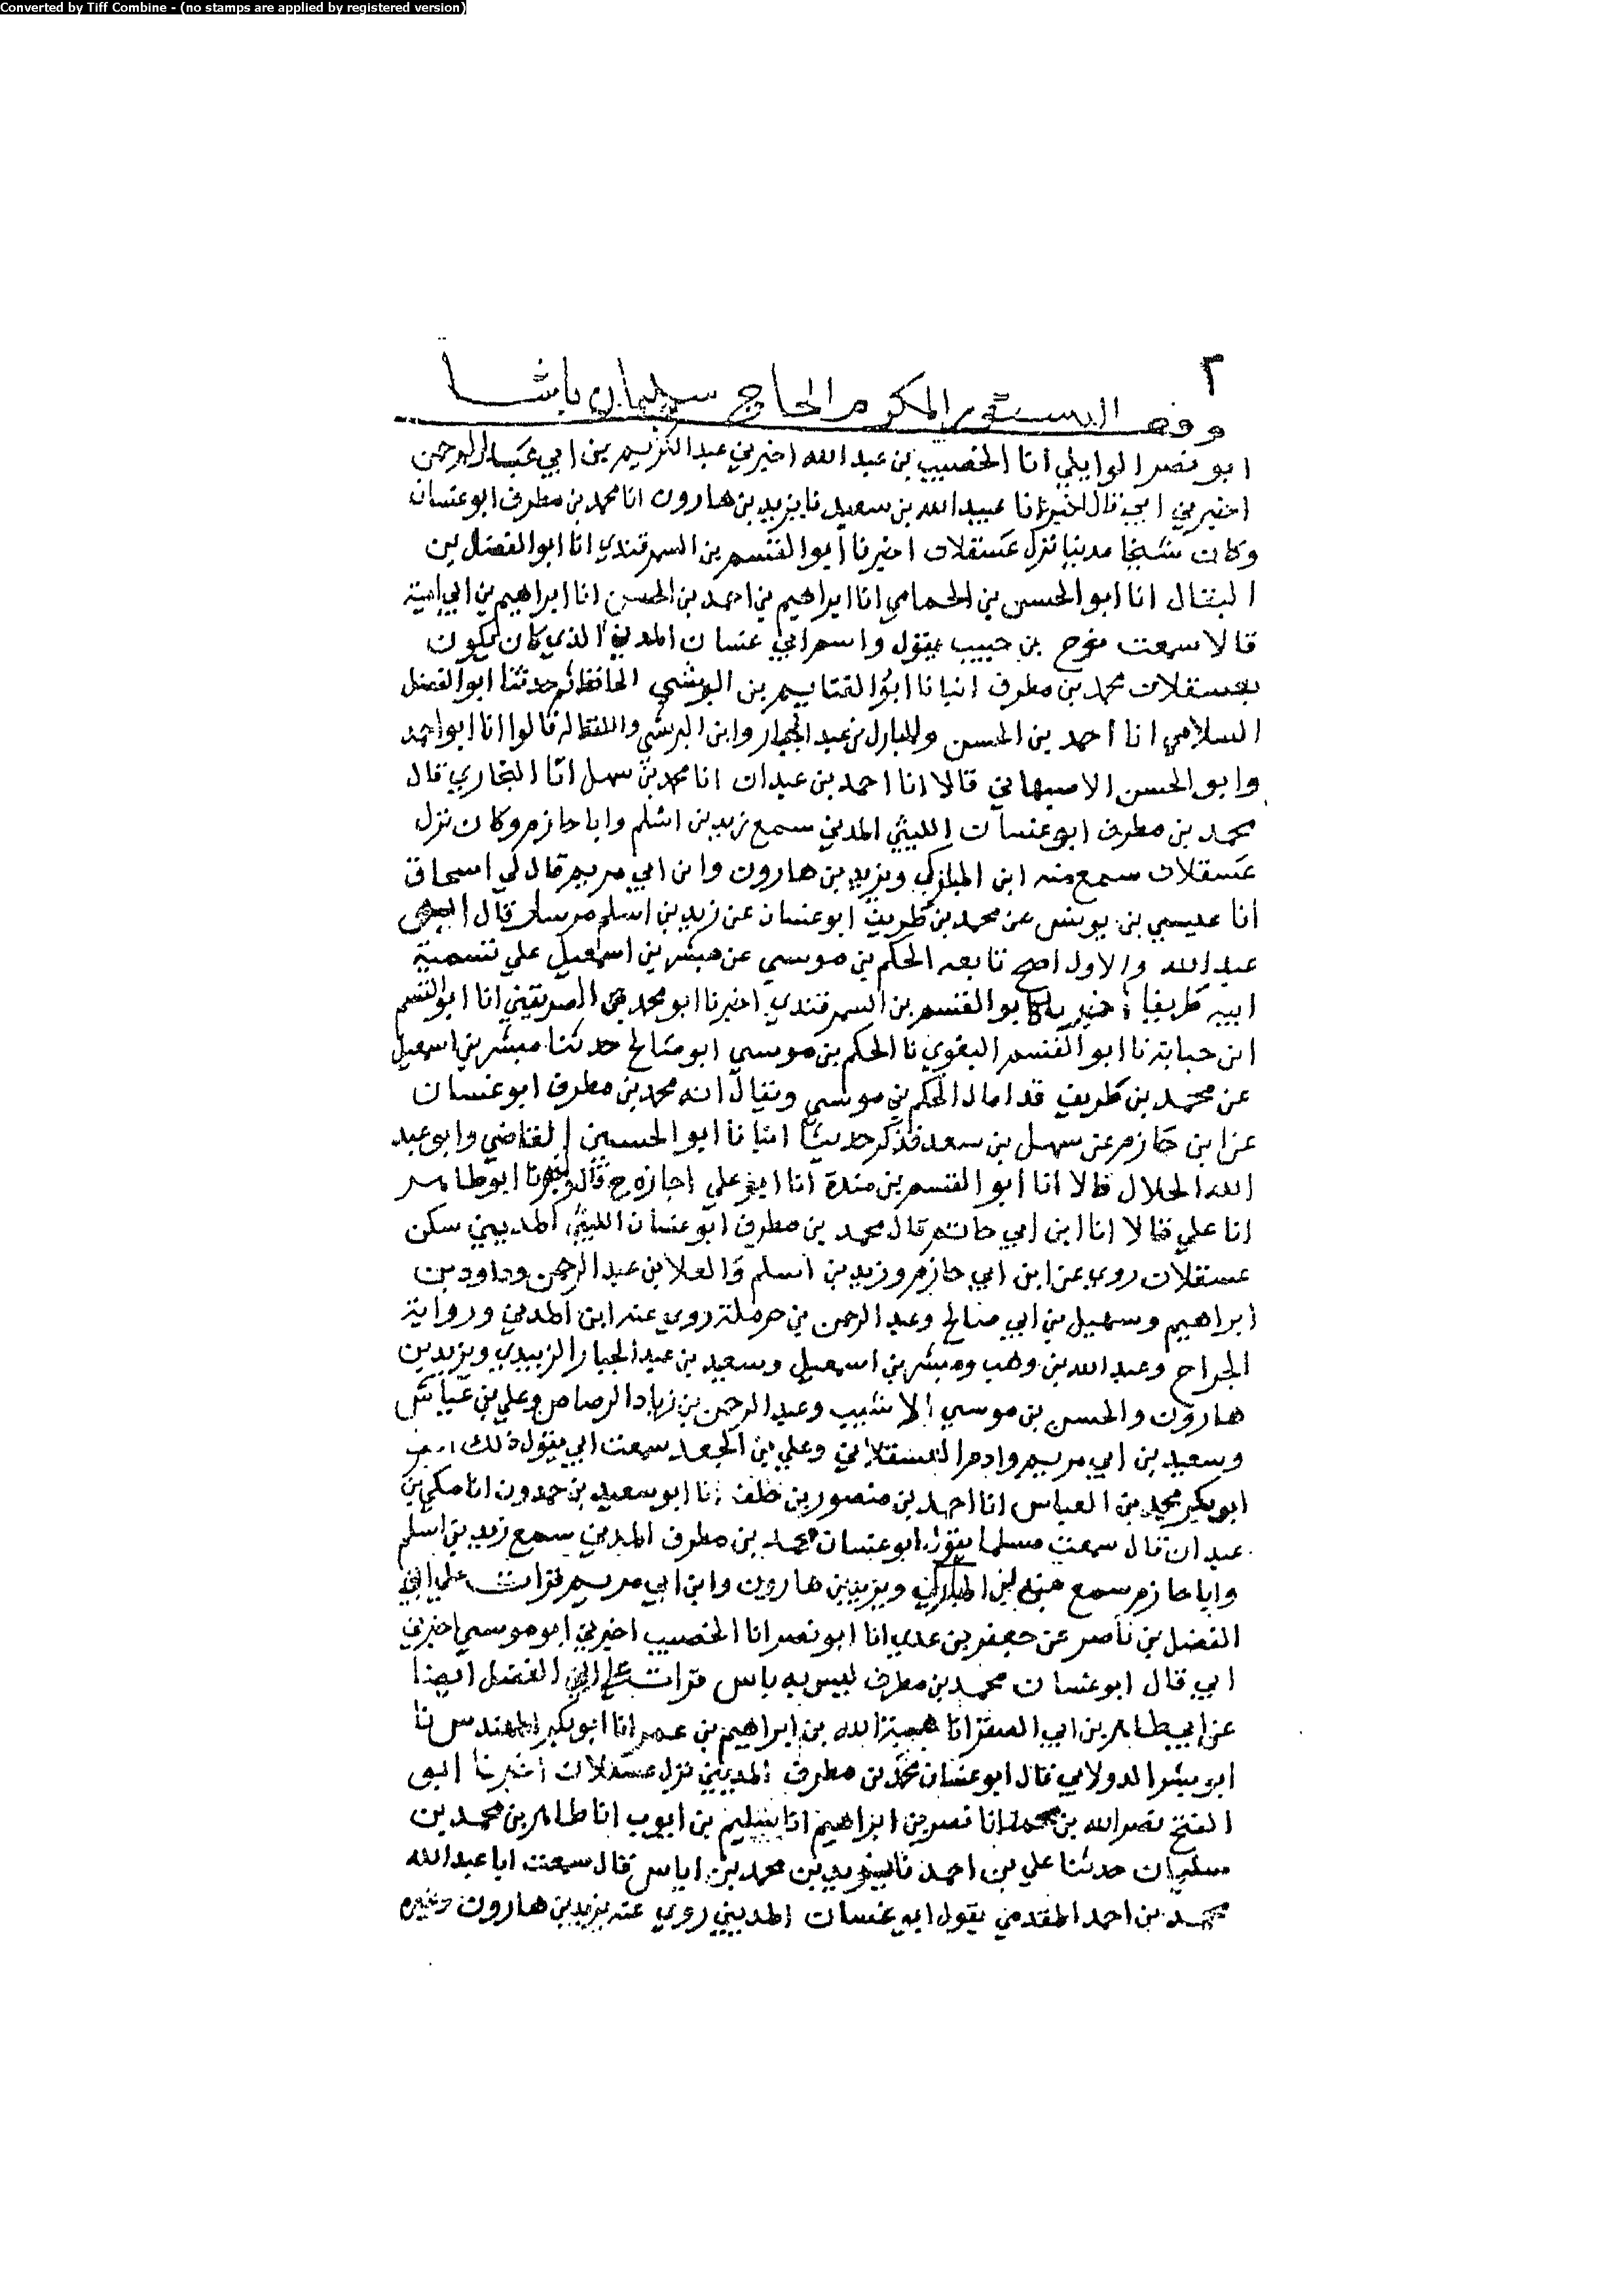 Converted by Tiff Combine - (no stamps are applied by registered version)
٢
وقف الدستور المكرم الحاج سليمان باشا
ابو نصر الوايلي انا الخصيب بن عبد الله اخبرني عبد الكريم بن ابي عبد الرحمن
اخبرني ابي قال اخبرنا عبيد الله بن سعيد نا يزيد بن هارون انا محمد بن مطرف ابو غسان
وكان شيخا مدنيا نزل عسقلان اخبرنا ابوا القسم بن السمرقندي انا ابوا الفضل بن
البقال انا ابو الحسن بن الحمامي انا ابراهيم بن احمد بن الحسن انا ابراهيم بن ابي امية
قالا سمعت نوح بن حبيب يقول واسم ابي غسان المديني الذي كان يكون
بعسقلان محمد بن مطرف انبانا ابوا الغنايم بن النرسي الحافظ ثم حدثنا ابوا الفضل
السلامي انا احمد بن الحسن والمبارك بن عبد الجبار وابن النرسي واللفظ له قالوا انا ابو احمد
وابو الحسن الاصبهاني قالا انا احمد بن عبدان انا محمد بن سهل انا البخاري قال
محمد بن مطرف ابو غسان الليثي المديني سمع زيد بن اسلم وابا حازم وكان نزل
عسقلان سمع منه ابن المبارك ويزيد بن هارون وابن ابي مريم قال لي اسحاق
انا عيسي بن يونس عن محمد بن طريف ابو غسان عن زيد بن اسلم مرسل قال ابو
عبد الله والاول اصح تابعه الحكم بن موسي عن مبشر بن اسمعيل علي تسمية
ابيه طريفا ابوا القسم بن السمرقندي اخبرنا ابو محمد الصريفيني انا ابوا القسم
ابن حبابة نا ابوا القسم البغوي نا الحكم بن موسي ابو صالح حدثنا مبشر بن اسمعيل
عن محمد بن طريف كذا قال الحكم بن موسي ويقال انه محمد بن مطرف ابو غسان
عن ابن حازم عن سهل بن سعد فذكر حديثا انبانا ابوا الحسين القاضي وابو عبد
الله الخلال قالا انا ابوا القسم بن مندة انا ابو علي اجازه ح قال واخبرنا ابو طاهر
انا علي قالا انا ابن ابي حاتم قال محمد بن مطرف ابو غسان الليثي المديني سكن
عسقلان روي عن ابن ابي حازم وزيد بن اسلم والعلا بن عبد الرحمن وداود بن
ابراهيم وسهيل بن ابي صالح وعبد الرحمن بن حرملة روي عنه ابن المديني ورواية
الجراح وعبد الله بن وهب ومبشر بن اسمعيل وسعيد بن عبد الجبار الزبيدي ويزيد بن
هارون والحسن بن موسي الاشيب وعبد الرحمن بن زياد الرصاص وعلي بن عياش
وسعيد بن ابي مريم وادم العسقلاني وعلي بن الجعد سمعت ابي يقول ذلك
ابو بكر محمد بن العباس انا احمد بن منصور بن خلف انا ابو سعيد بن حمدون انا مكي بن
عبدان قال سمعت مسلما يقول ابو غسان محمد بن مطرف المديني سمع زيد بن اسلم
وابا حازم سمع منه ابن المبارك ويزيد بن هارون وابن ابي مريم قرات علي ابي
الفضل بن ناصر عن جعفر بن عدي انا ابو نصر انا الخصيب اخبرني ابو موسي اخبرني
ابي قال ابو غسان محمد بن مطرف ليس به باس قرات علي ابي الفضل ايضا
عن ابي طاهر بن ابي الصقر انا هبة الله بن ابراهيم بن عمر انا ابو بكر المهندس نا
ابو بشر الدولابي قال ابو غسان محمد بن مطرف المديني نزل عسقلان اخبرنا ابو
الفتح نصر الله بن محمد انا نصر بن ابراهيم انا سليم بن ايوب انا طاهر بن محمد بن
سليمان حدثنا علي بن احمد نا يزيد بن محمد بن اياس قال سمعت ابا عبد الله
محمد بن احمد المقدمي يقول ابو غسان المديني روي عنه يزيد بن هارون وغيره